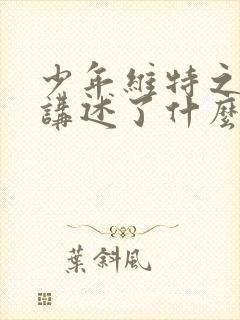 少年維特之
講述了什麼
葉斜風